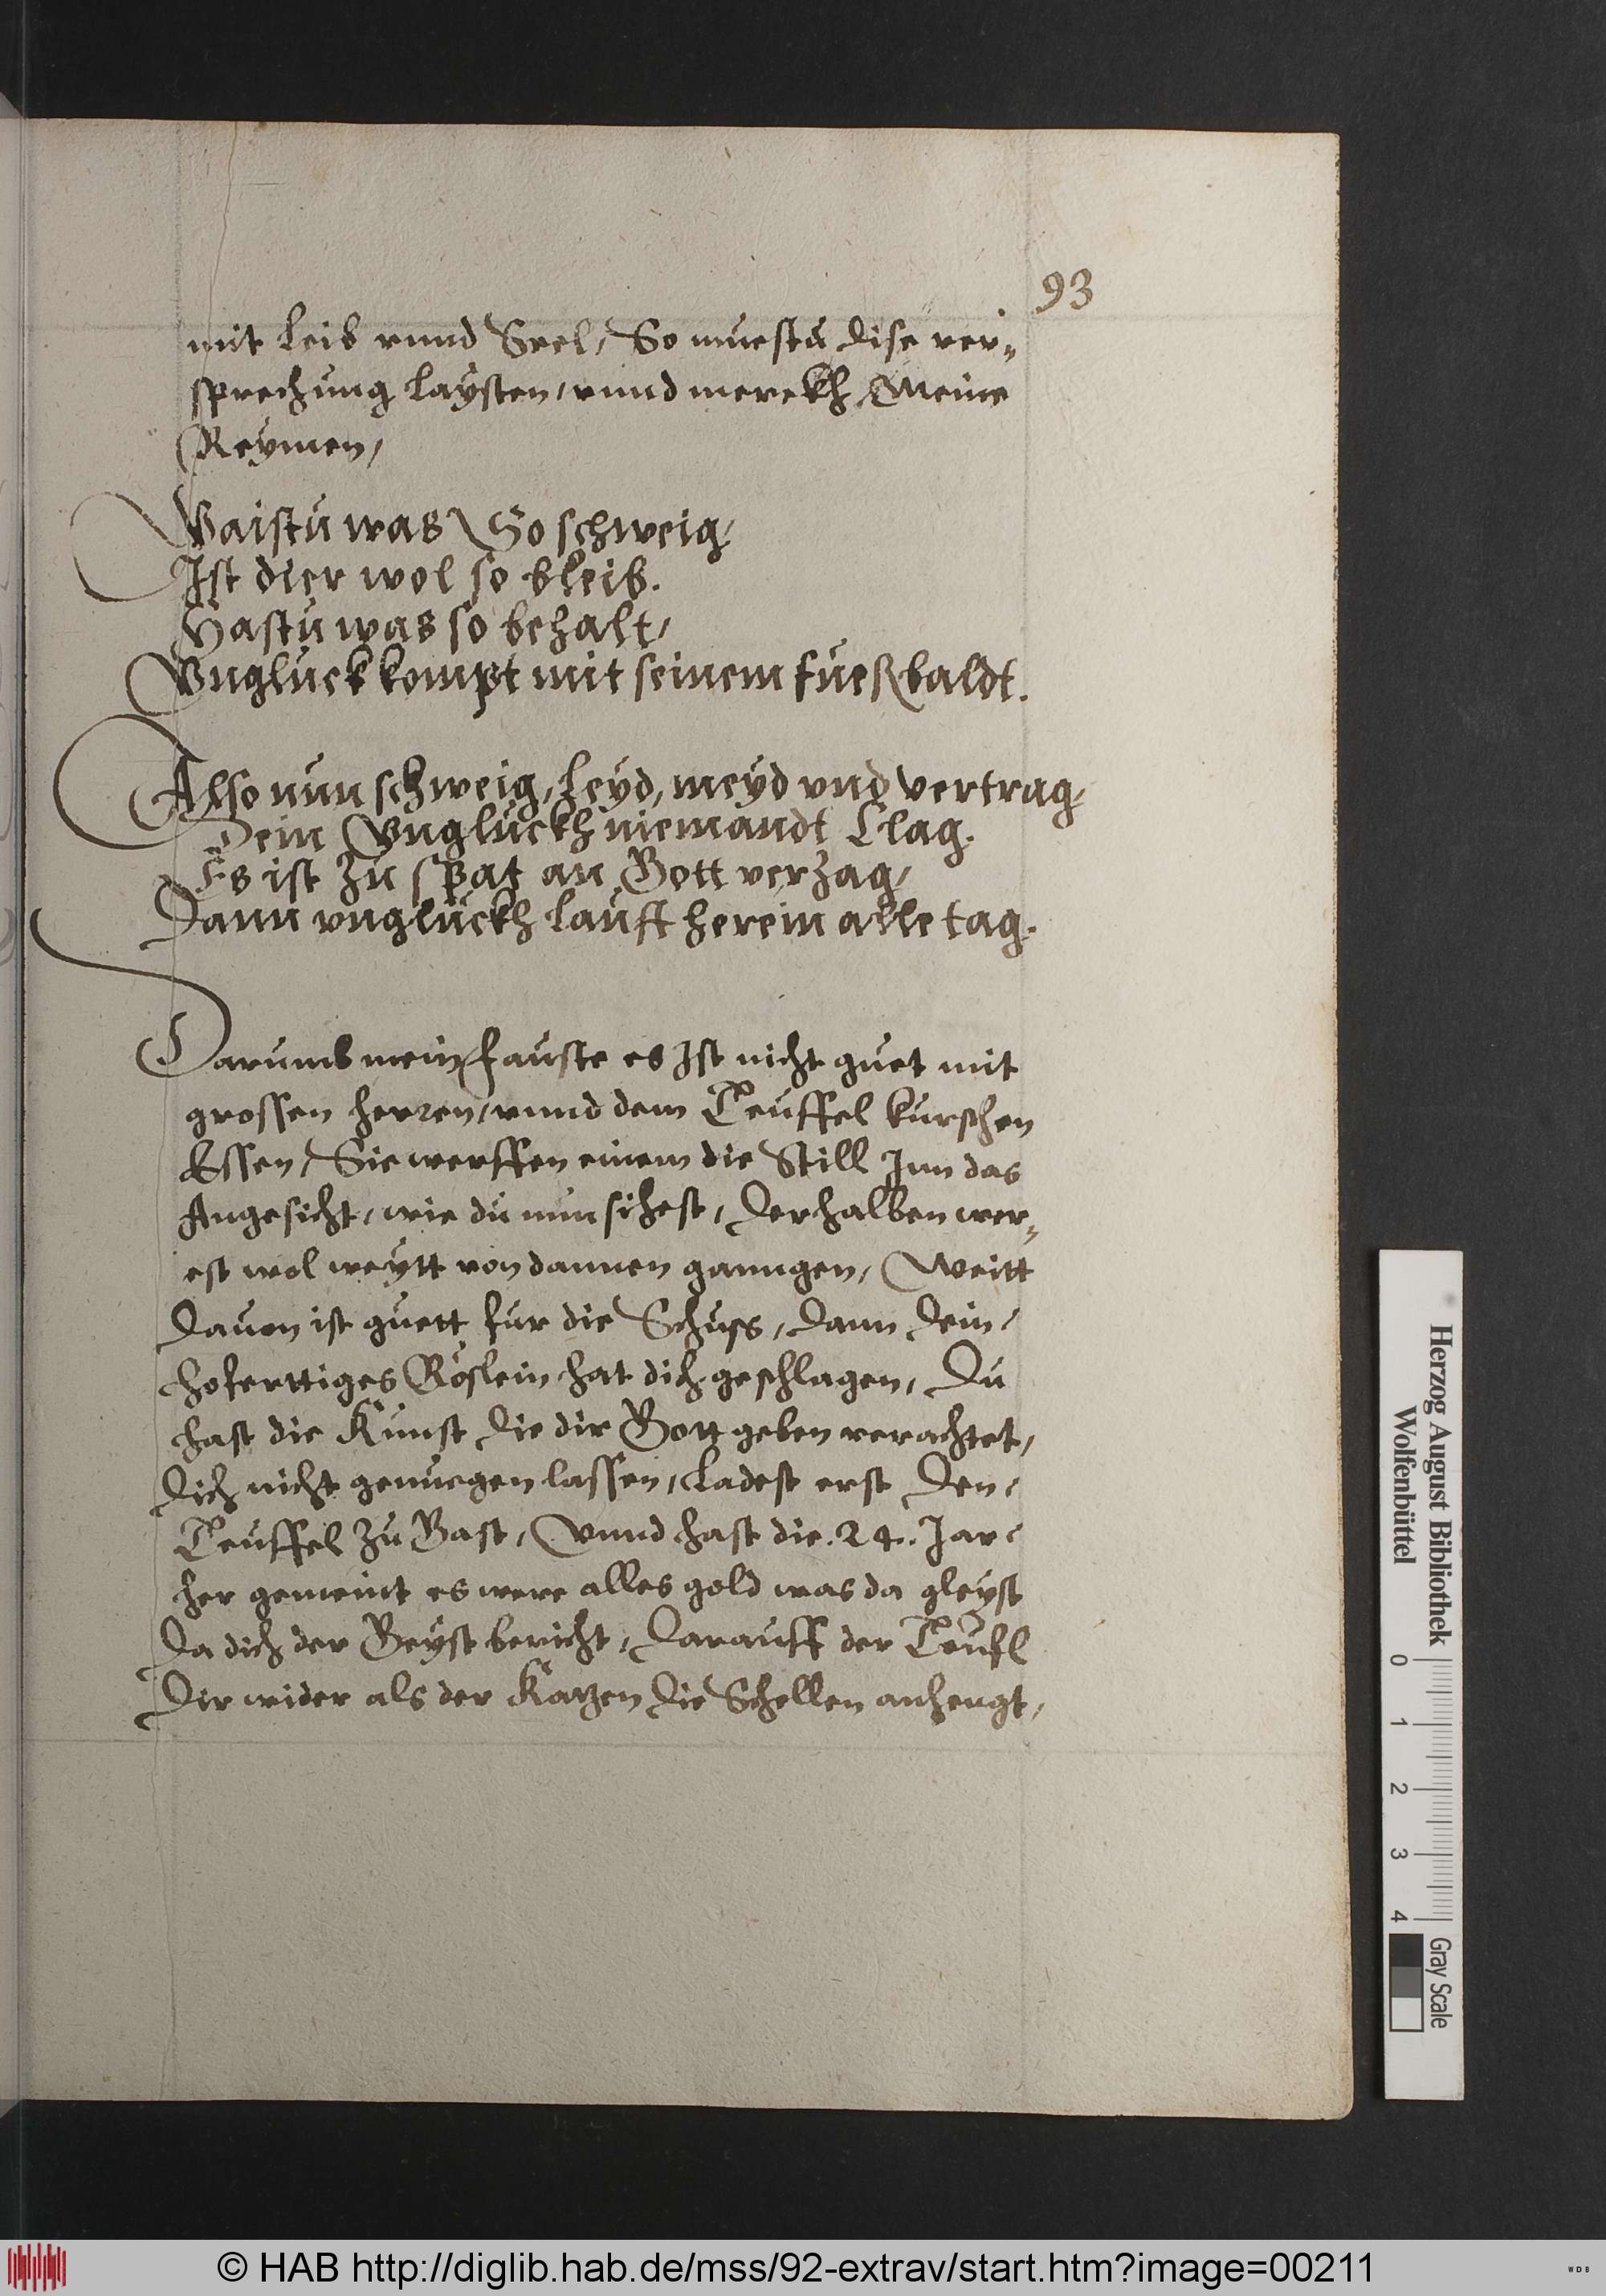 93
mit Leib vnnd Seel, So muestu dise ver-
sprechung laÿsten, vnnd merckh Meine
Reÿmen,
Waistu was So schweig,
Ist dier wol so bleib.
Hastu was so behalt,
Vngluck kompt mit seinem fueß baldt.
Also nun schweig, leyd, meyd vnd vertrag,
Dein Vngluckh niemandt Clag.
Es ist zu spat an Gott verzag,
Dann vngluckh laufft herein alle tag.
Darumb mein Fauste es Ist nicht guet mit
grossen herren, vnnd dem Teuffel kurschen
Essen, Sie werffen einem die Still Inn das
Angesicht, wie du nun sihest, Derhalben wer-
est wol weÿtt von dannen ganngen, Weitt
Dauon ist guett fur die Schuss, Dann Dein
hoferttiges Röslein hat dich geschlagen, Du
hast die Kunst Die dir Gott geben verachtet,
Dich nicht genuegen lassen, Ladest erst Den
Teuffel zu Gast, Vnnd hast die .24. Jar
her gemeint es were alles gold was da gleÿst
Da dich der Geÿst bericht, Darauff der Teufl
Dir wider als der Katzen Die Schellen anhengt,
Herzog August Bibliothek
Wolfenbüttel
0 1 2 3 4
Gray Scale
© HAB http://diglib.hab.de/mss/92-extrav/start.htm?image=00211
WDB